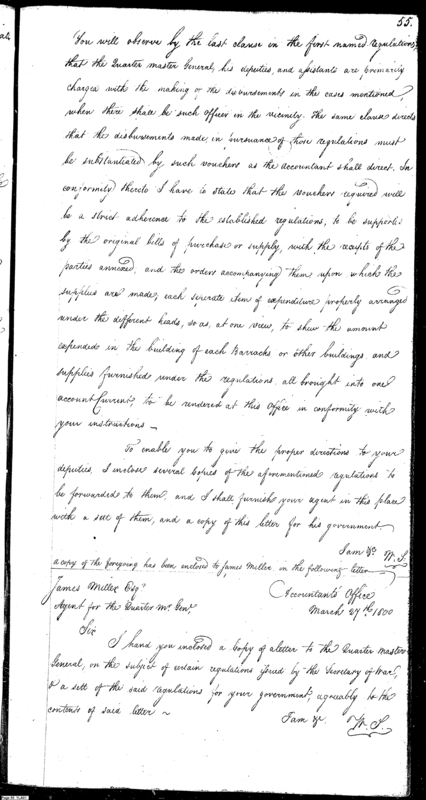 55.
You will observe by the last clause in the first named regulations,
that the Quarter master General, his deputies, and assistants are primarily
charged with the making of the disbursements in the cases mentioned,
when there shall be such Officer in the vicinity. the same clause directs
that the disbursements made, in pursuance of those regulations must
be substantiated by such vouchers as the accountant shall direct. In
conformity thereto I have to state that the vouchers required will
be a strict adherence to the established regulations, to be supported
by the original bills of purchase or supply, with the receipts of the
parties annexed, and the orders accompanying them upon which the
supplies are made, each seperate item of expenditure properly arranged
under the different heads, so as, at one view, to shew the amount
expended in the building of each Barracks or other buildings and
supplies furnished under the regulations, all brought into one
account Current, to be rendered at this Office in conformity with
your instructions —
To enable you to give the proper directions to your
deputies, I inclose several Copies of the aforementioned regulations to
be forwarded to them, and I shall furnish your agent in this place
with a sett of them, and a copy of this letter for his government.
I am &c W. S.
a copy of the foregoing has been enclosed to James Miller in the following letter
James Miller Esqr
Accountants Office
Agent for the Quarter Mr. Genl
March 27th 1800
Sir
I hand you inclosed a Copy of a letter to the Quarter Master
General, on the subject of certain regulations issued by the Secretary of War,
& a sett of the said regulations for your government, agreeably to the
contents of said letter ~
I am &c W. S.